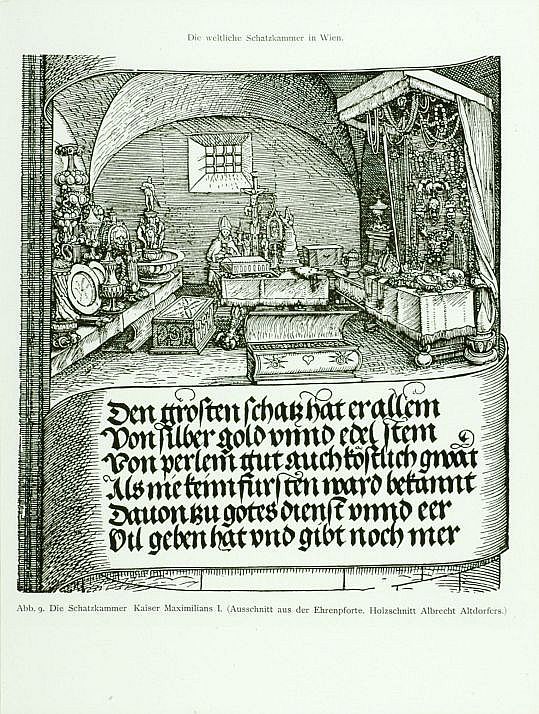 Die weltliche Schatzkammer in Wien.
Den grosten schatz hat er allein
Von silber gold vnnd edel stein
Von perlein gut auch köstlich gwat
Als nie keim fursten ward bekannt
Dauon tzu gotes dienst vnnd eer
Vil geben hat vnd gibt noch mer
Abb. 9. Die Schatzkammer Kaiser Maximilians I. (Ausschnitt aus der Ehrenpforte. Holzschnitt Albrecht Altdorfers.)